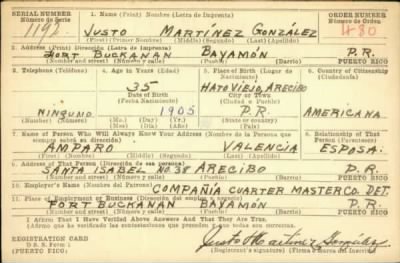 SERIAL NUMBER 1. Name (Print) Nombre (Letra de Imprenta) ORDER NUMBER
Número de Serie Número de Orden
1192 JUSTO MARTÍNEZ GONZÁLEZ 480
(First) (Primer Nombre) (Middle) (Segundo) (Last) (Apellido)
2. Address (Print) Dirección (Letra de Imprenta)
FORT BUCHANAN BAYAMÓN P.R.
(Number and street) (Número y calle) (Town) (Pueblo) PUERTO RICO
3. Telephone (Teléfono) 4. Age in Years (Edad) 5. Place of Birth (Lugar de Nacimiento) 6. Country of Citizenship (Ciudadanía)
35 HATO VIEJO, ARECIBO
Date of Birth City or Town
(Fecha Nacimiento) (Ciudad o Pueblo)
NINGUNO 1905 P.R. AMERICANA
(Mo.) (Day) (Yr.) (State or country)
(Mes) (Día) (Año)
7. Name of Person Who Will Always Know Your Address (Nombre de la Persona que siempre sabrá su dirección) 8. Relationship of That Person (Parentesco)
AMPARO VALENCIA ESPOSA.
(First) (Nombre) (Middle) (Segundo) (Last) (Apellido)
9. Address of That Person (Dirección de esa persona)
SANTA ISABEL No. 38 ARECIBO P.R.
(Number and street) (Número y calle) (Town) (Pueblo) PUERTO RICO
10. Employer's Name (Nombre del Patrono)
COMPAÑIA CUARTER MASTER CO. DET.
11. Place of Employment or Business (Dirección del empleo o negocio)
FORT BUCKANAN BAYAMÓN P.R.
(Number and street) (Número y calle) (Town) (Pueblo) PUERTO RICO
I Affirm That I Have Verified Above Answers and That They Are True.
(Afirmo que he verificado las contestaciones que preceden y que todas son ciertas)
REGISTRATION CARD
D. S. S. Form 1
(PUERTO RICO)
Justo Martínez González
(Registrant's signature) (Firma del Inscrito)